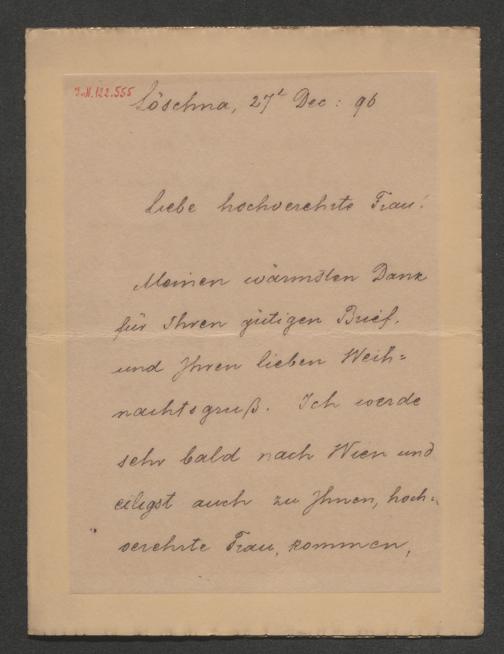 I.N.122.555
Löschna, 27t Dec: 96
Liebe hochverehrte Frau!
Meinen wärmsten Dank
für Ihren gütigen Brief,
und Ihren lieben Weih=
nachtsgruß. Ich werde
sehr bald nach Wien und
eiligst auch zu Ihnen, hoch=
verehrte Frau, kommen,